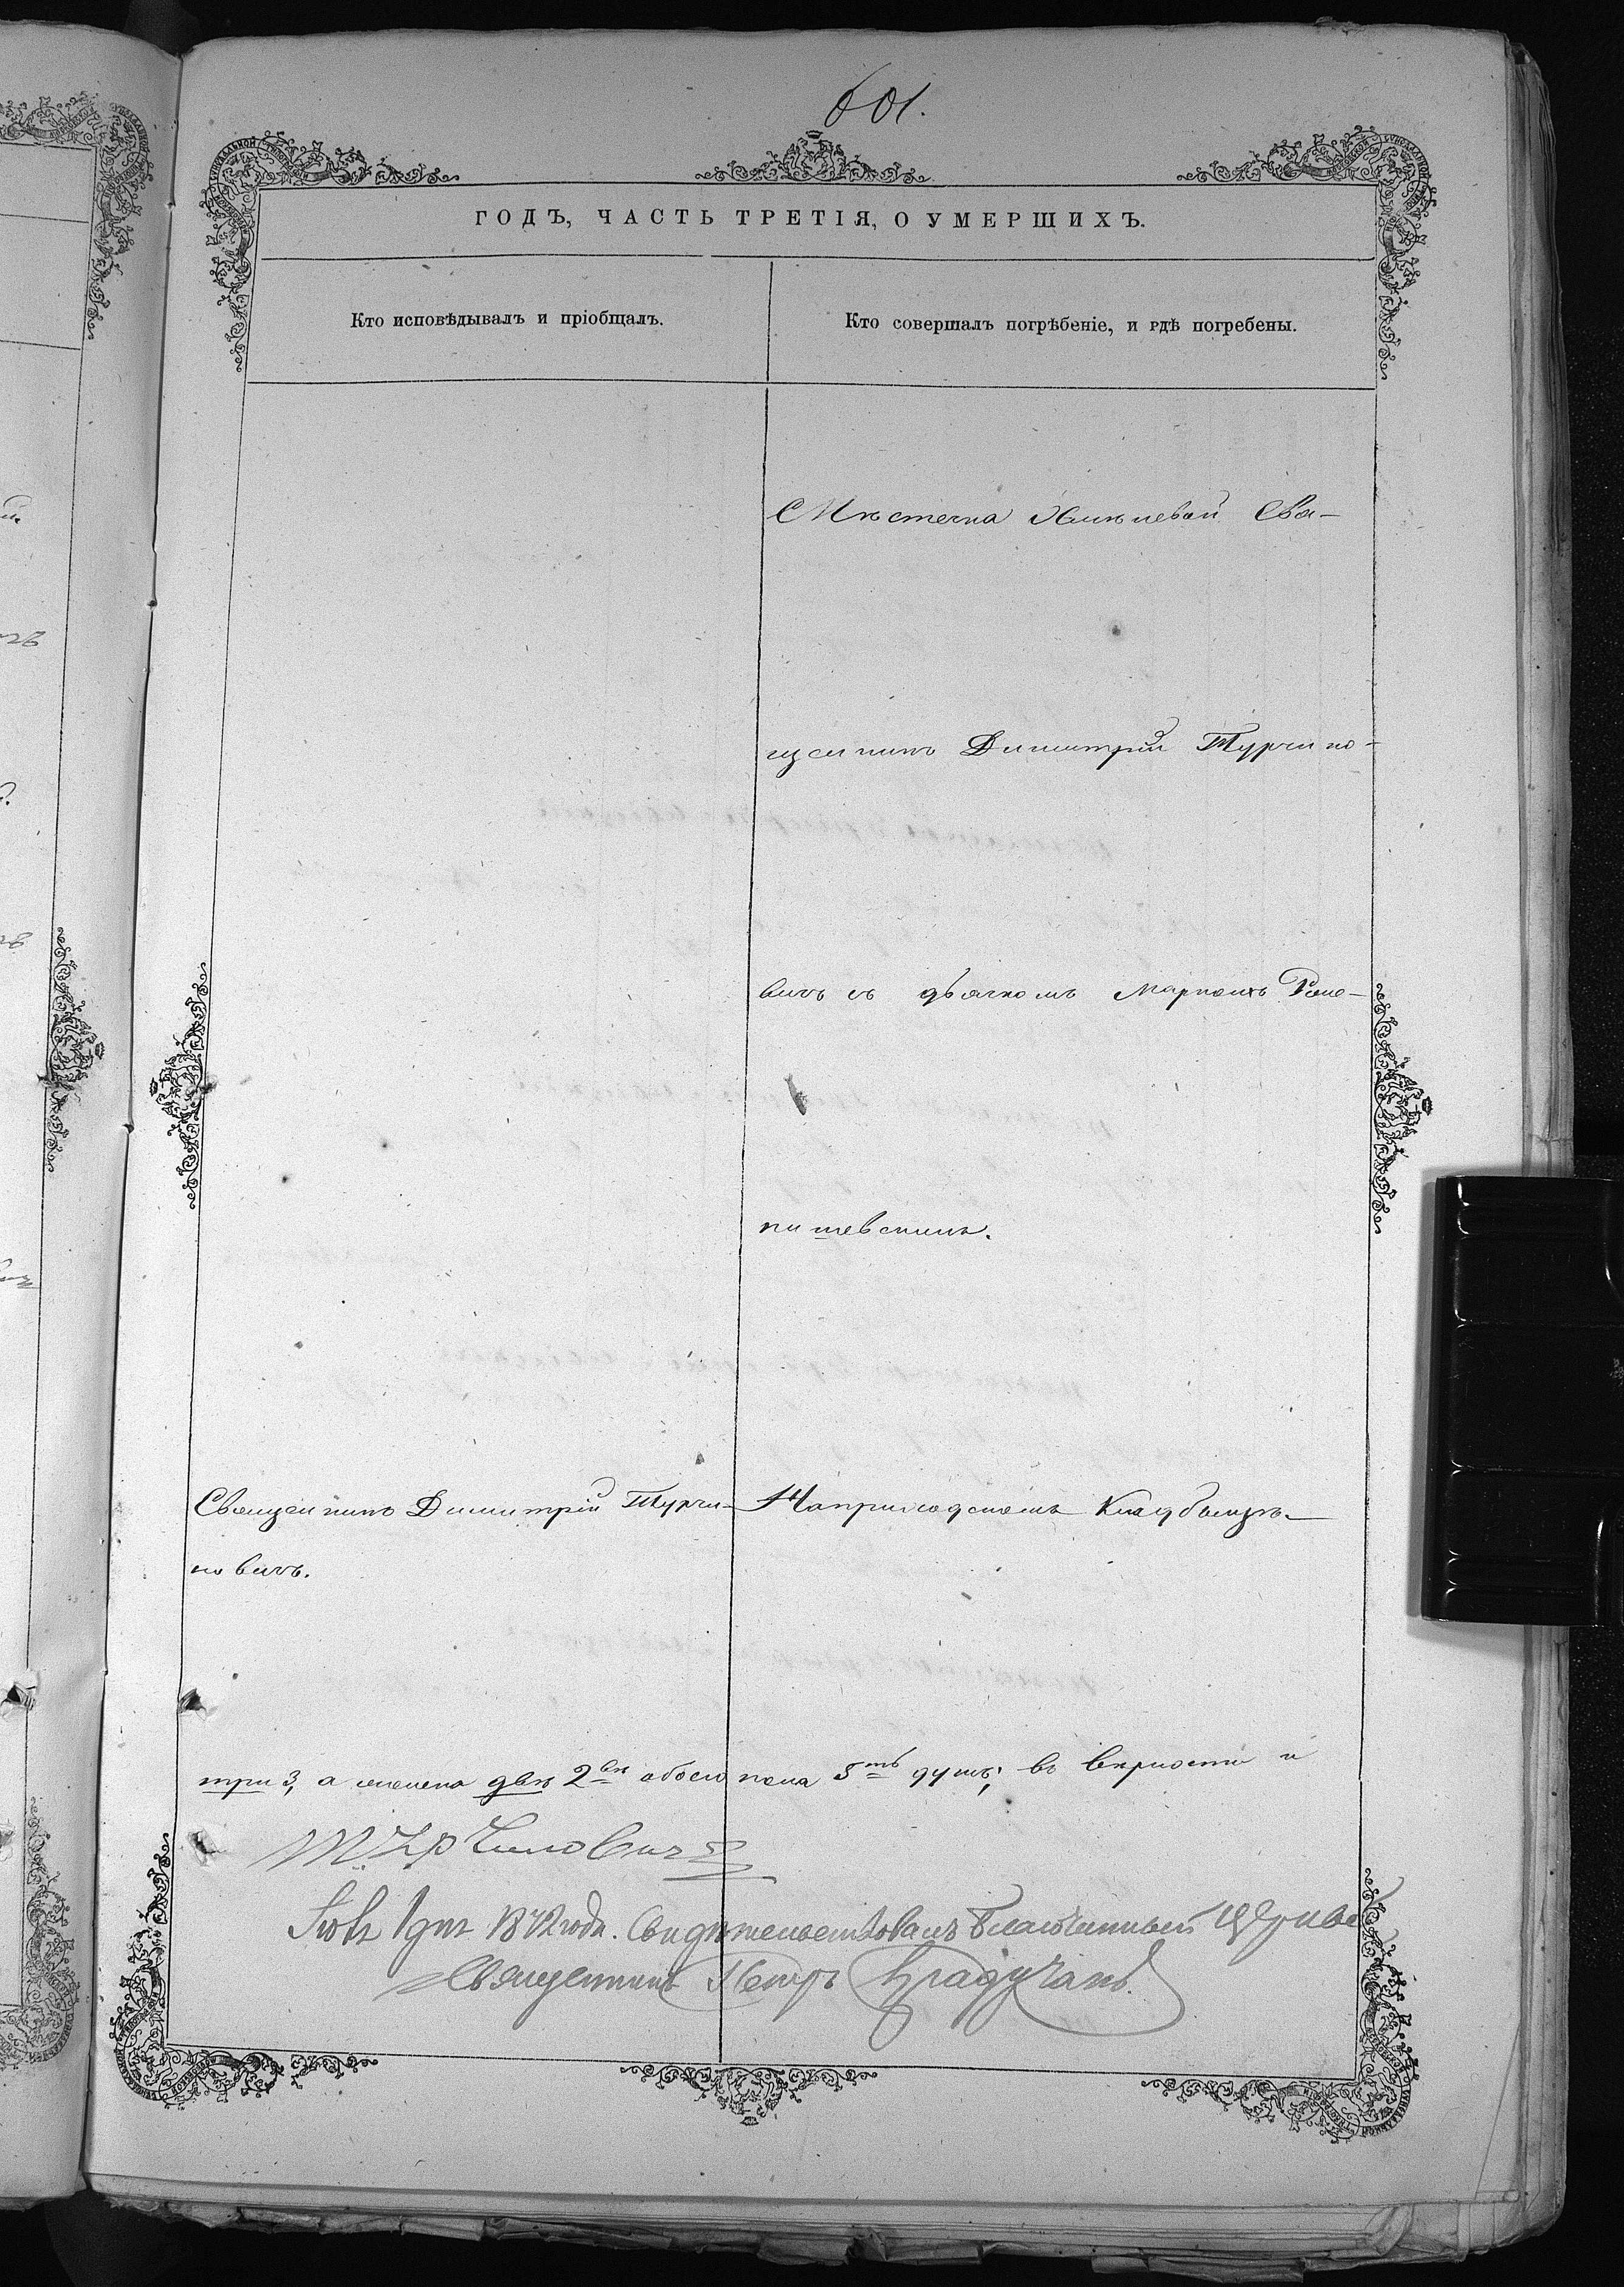 601.
ГОДЪ, ЧАСТЬ ТРЕТІЯ, О УМЕРШИХЪ.
Кто исповѣдывалъ и пріобщалъ.
Кто совершалъ погрѣбеніе, и гдѣ погребены.
Мѣстечка Свя-
щенникъ Димитрій Турчино-
вичъ съ дьячкомъ Маркомъ
Священникъ Димитрій Турчи-
новичъ.
На приходскомъ кладбищѣ.
три 3, а женска двѣ 2вѣ обоего пола 5ть душъ; въ вѣрности и
Турчиновичъ
1872 года. Свидѣтельствовалъ Благочинный
Священникъ Петръ